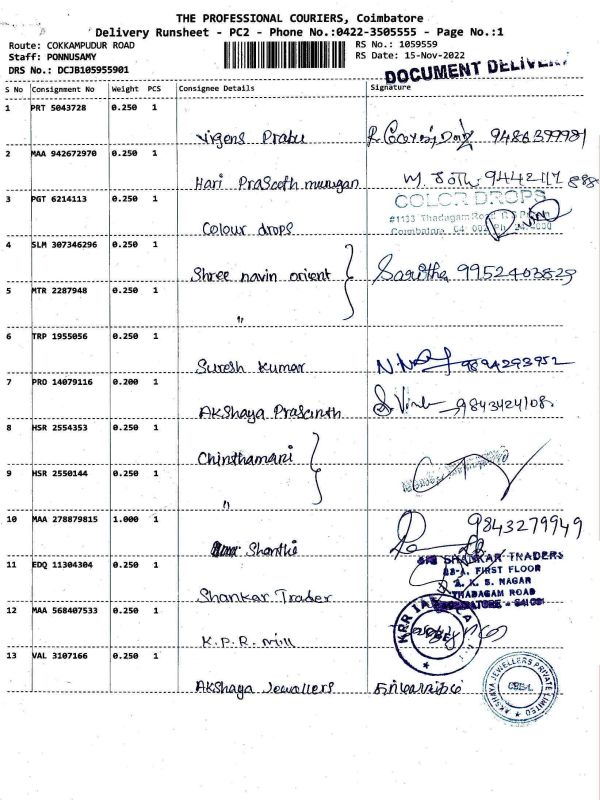 THE PROFESSIONAL COURIERS, Coimbatore
Delivery Runsheet - PC2 - Phone No.:0422-3505555 - Page No.:1
Route: COKKAMPUDUR ROAD
Staff: PONNUSAMY
DRS No.: DCJB105955901
RS No.: 1059559
RS Date: 15-Nov-2022
DOCUMENT DELIVERY
S No Consignment No Weight PCS Consignee Details Signature
1 PRT 5043728 0.250 1
Vigens Prabu 9486399981
2 MAA 942672970 0.250 1
Hari Prasoth murugan
3 PGT 6214113 0.250 1
COLOR DROPS
#1133 Thadagam Road
Colour drops
4 SLM 307346296 0.250 1
Shree navin orient Saritha 9952403829
5 MTR 2287948 0.250 1
"
6 TRP 1955056 0.250 1
Suresh Kumar 9894293952
7 PRO 14079116 0.200 1
Akshaya Prasanth 9843424108
8 HSR 2554353 0.250 1
Chinthamani
9 HSR 2550144 0.250 1
"
10 MAA 278879815 1.000 1
Shanthi 9843279949
SHANKAR TRADERS
11 EDQ 11304304 0.250 1
FIRST FLOOR
A. K. S. NAGAR
THADAGAM ROAD
Shankar Trader
12 MAA 568407533 0.250 1
K.P.R. mill
13 VAL 3107166 0.250 1
Akshaya Jewellers
AKSHAYA JEWELLERS PRIVATE LIMITED